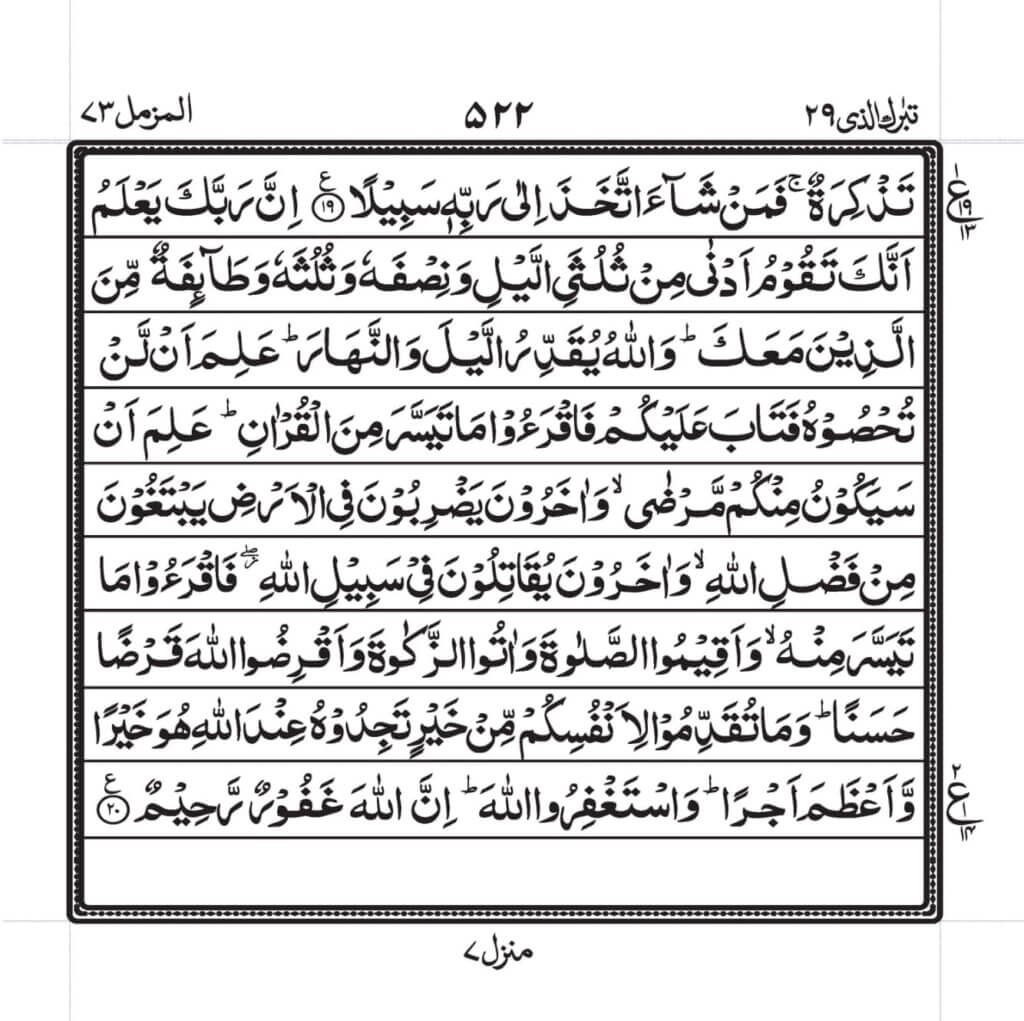 تبٰرك الذى ٢٩ ۵۲۲ المزمل ٧٣
تَذْكِرَةٌ ۚ فَمَنْ شَآءَ اتَّخَذَ اِلٰى رَبِّهٖ سَبِيْلًا ﴿١٩﴾ ع اِنَّ رَبَّكَ يَعْلَمُ
ع ١ ١٩ ١٣
اَنَّكَ تَقُوْمُ اَدْنٰى مِنْ ثُلُثَىِ الَّيْلِ وَنِصْفَهٗ وَثُلُثَهٗ وَطَآئِفَةٌ مِّنَ
الَّذِيْنَ مَعَكَ ؕ وَاللّٰهُ يُقَدِّرُ الَّيْلَ وَالنَّهَارَ ؕ عَلِمَ اَنْ لَّنْ
تُحْصُوْهُ فَتَابَ عَلَيْكُمْ فَاقْرَءُوْا مَا تَيَسَّرَ مِنَ الْقُرْاٰنِ ؕ عَلِمَ اَنْ
سَيَكُوْنُ مِنْكُمْ مَّرْضٰى ۙ وَاٰخَرُوْنَ يَضْرِبُوْنَ فِى الْاَرْضِ يَبْتَغُوْنَ
مِنْ فَضْلِ اللّٰهِ ۙ وَاٰخَرُوْنَ يُقَاتِلُوْنَ فِىْ سَبِيْلِ اللّٰهِ ۖ فَاقْرَءُوْا مَا
تَيَسَّرَ مِنْهُ ۙ وَاَقِيْمُوا الصَّلٰوةَ وَاٰتُوا الزَّكٰوةَ وَاَقْرِضُوا اللّٰهَ قَرْضًا
حَسَنًا ؕ وَمَا تُقَدِّمُوْا لِاَنْفُسِكُمْ مِّنْ خَيْرٍ تَجِدُوْهُ عِنْدَ اللّٰهِ هُوَ خَيْرًا
وَّاَعْظَمَ اَجْرًا ؕ وَاسْتَغْفِرُوا اللّٰهَ ؕ اِنَّ اللّٰهَ غَفُوْرٌ رَّحِيْمٌ ﴿٢٠﴾ ع
ع ٢ ١ ١٤
منزل ٧